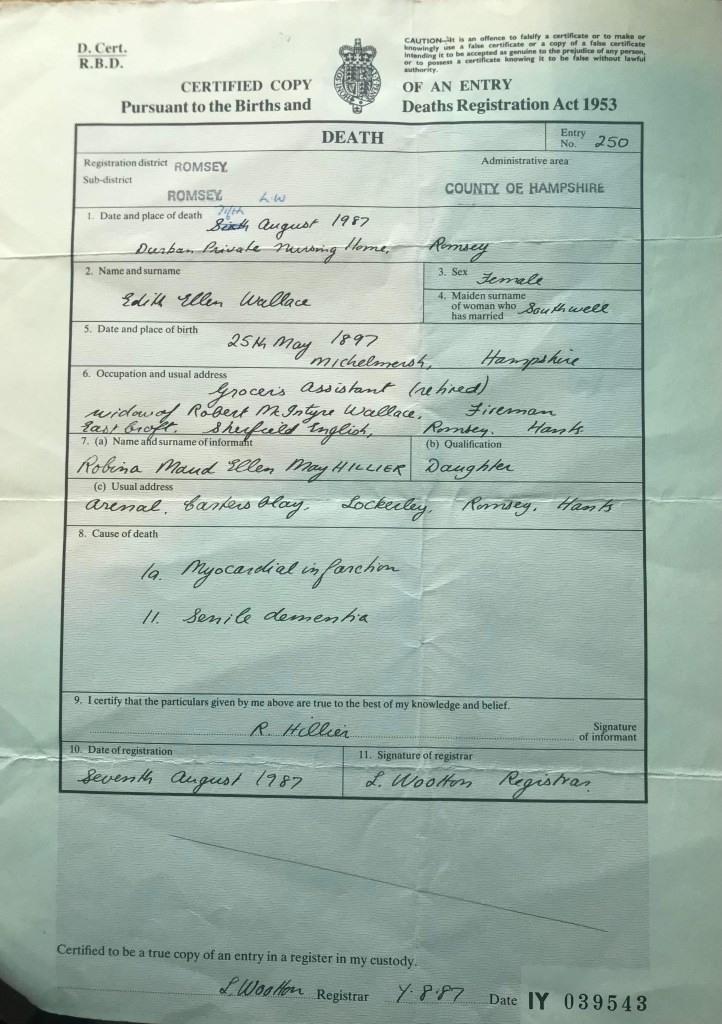 D. Cert.
R.B.D.
CAUTION—It is an offence to falsify a certificate or to make or
knowingly use a false certificate or a copy of a false certificate
intending it to be accepted as genuine to the prejudice of any person,
or to possess a certificate knowing it to be false without lawful
authority.
CERTIFIED COPY OF AN ENTRY
Pursuant to the Births and Deaths Registration Act 1953
DEATH
Entry No. 250
Registration district ROMSEY
Administrative area
Sub-district
ROMSEY L.W
COUNTY OF HAMPSHIRE
fifth
1. Date and place of death Sixth August 1987
Durban Private Nursing Home, Romsey
2. Name and surname
Edith Ellen Wallace
3. Sex Female
4. Maiden surname of woman who has married Southwell
5. Date and place of birth 25th May 1897
Michelmersh, Hampshire
6. Occupation and usual address
Grocers Assistant (retired)
widow of Robert McIntyre Wallace, Fireman
East Croft. Sherfield English, Romsey. Hants
7. (a) Name and surname of informant
Robina Maud Ellen May HILLIER
(b) Qualification
Daughter
(c) Usual address
Arenal, Lockerley, Romsey, Hants
8. Cause of death
1a. Myocardial infarction
11. Senile dementia
9. I certify that the particulars given by me above are true to the best of my knowledge and belief.
R. Hillier Signature of informant
10. Date of registration
Seventh August 1987
11. Signature of registrar
L. Wootton Registrar
Certified to be a true copy of an entry in a register in my custody.
L. Wootton Registrar 7.8.87 Date IY 039543